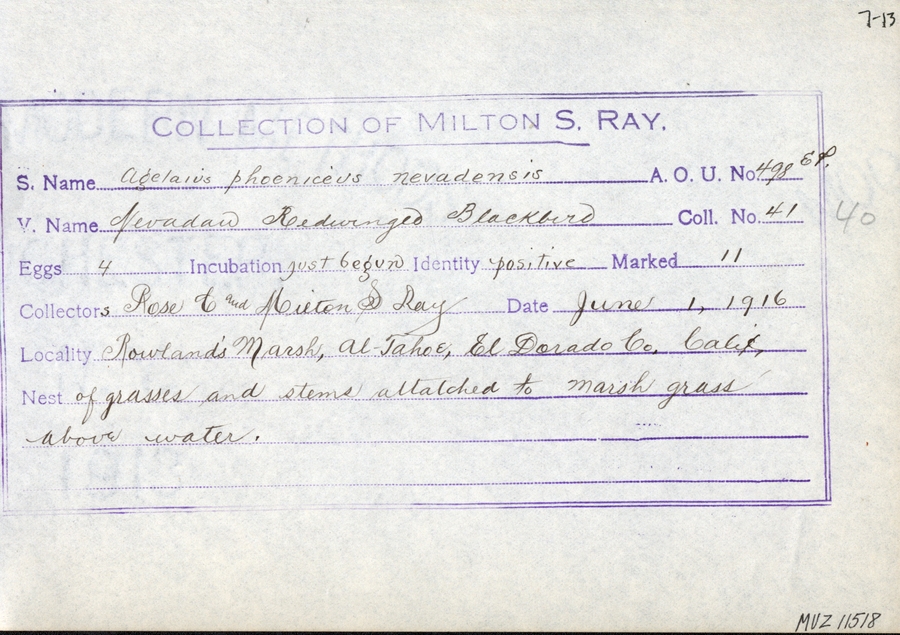 7-13
COLLECTION OF MILTON S. RAY.
S. Name Agelaius phoeniceus nevadensis A. O. U. No. 498 E P.
V. Name Nevadan Redwinged Blackbird Coll. No. 41 40
Eggs 4 Incubation just begun Identity positive Marked 11
Collectors Rose C and Milton S Ray Date June 1, 1916
Locality Rowland's Marsh, Al-Tahoe, El Dorado Co. Calif,
Nest of grasses and stems attatched to marsh grass
above water.
MVZ 11518